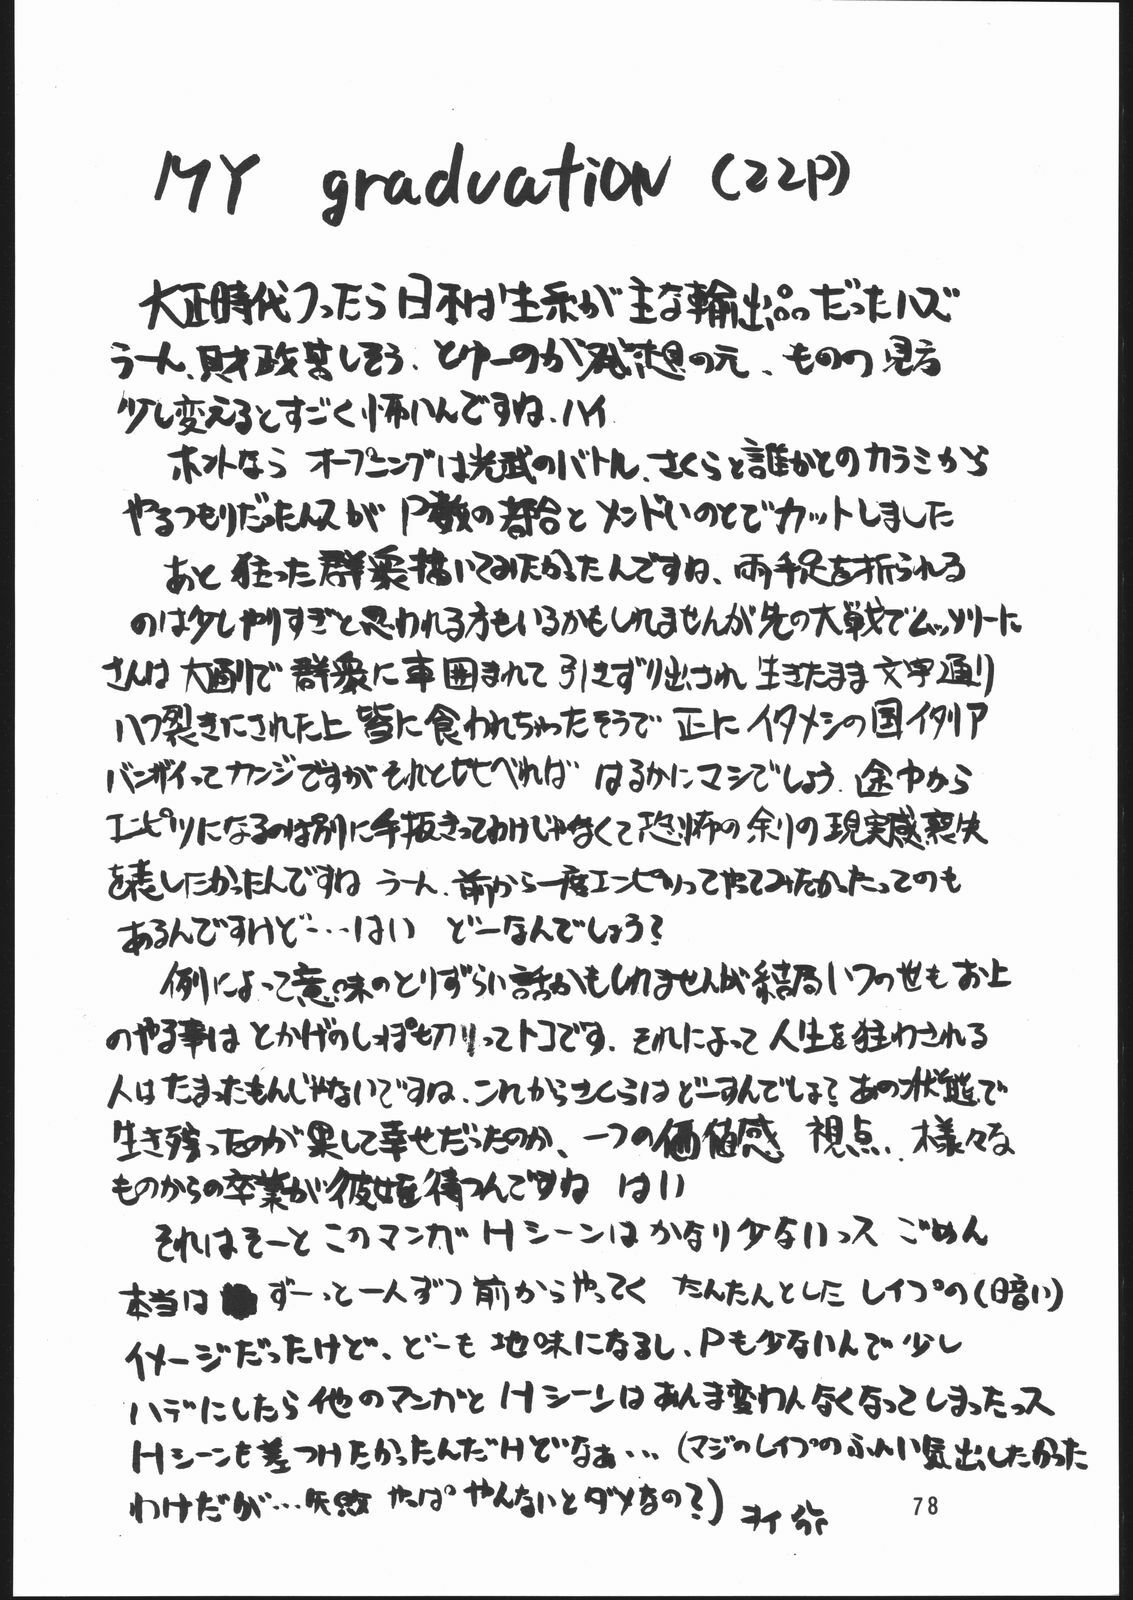 MY graduation (22P)
大正時代つったら日本は生糸が主な輸出品だったハズ
うーん、財政苦しそう、とゆーのが発想の元、ものの見方
少し変えるとすごく怖いんですね、ハイ
ホントなら オープニングは光武のバトル、さくらと誰かとのカラミから
やるつもりだったんスが P数の都合とメンドいのとでカットしました
あと 狂った群衆描いてみたかったんですね、両手足を折られる
のは少しやりすぎと思われる方もいるかもしれませんが先の大戦でムッソリーニ
さんは大通りで群衆に車囲まれて引きずり出され 生きたまま文字通り
ハツ裂きにされた上 皆に食われちゃったそうで 正にイタメシの国イタリア
バンザイってカンジですがそれと比べれば はるかにマシでしょう、途中から
エンピツになるのは別に手抜きってわけじゃなくて恐怖の余りの現実感喪失
を表したかったんですね うーん、前から一度エンピツってやってみたかったってのも
あるんですけど……はい どーなんでしょう?
例によって意味のとりずらい話かもしれませんが結局いつの世もお上
のやる事は とかげのしっぽ切りってトコです、それによって人生を狂わされる
人はたまったもんじゃないですね、これからさくらはどーすんでしょ?あの状態で
生き残ったのが果して幸せだったのか、一つの価値感 視点、様々な
ものからの卒業が彼女を待つんですね はい
それはそーと このマンガ Hシーンはかなり少ないっス ごめん
本当は ずーっと一人ずつ前からやってく たんたんとしたレイプの(暗い)
イメージだったけど、どーも 地味になるし、Pも少ないんで少し
ハデにしたら他のマンガとHシーンはあんま変わんなくなってしまったっス
Hシーンも差つけたかったんだけどなぁ…(マジのレイプのふんい気出したかった
わけだが…失敗 やっぱ やんないとダメなの?)
78